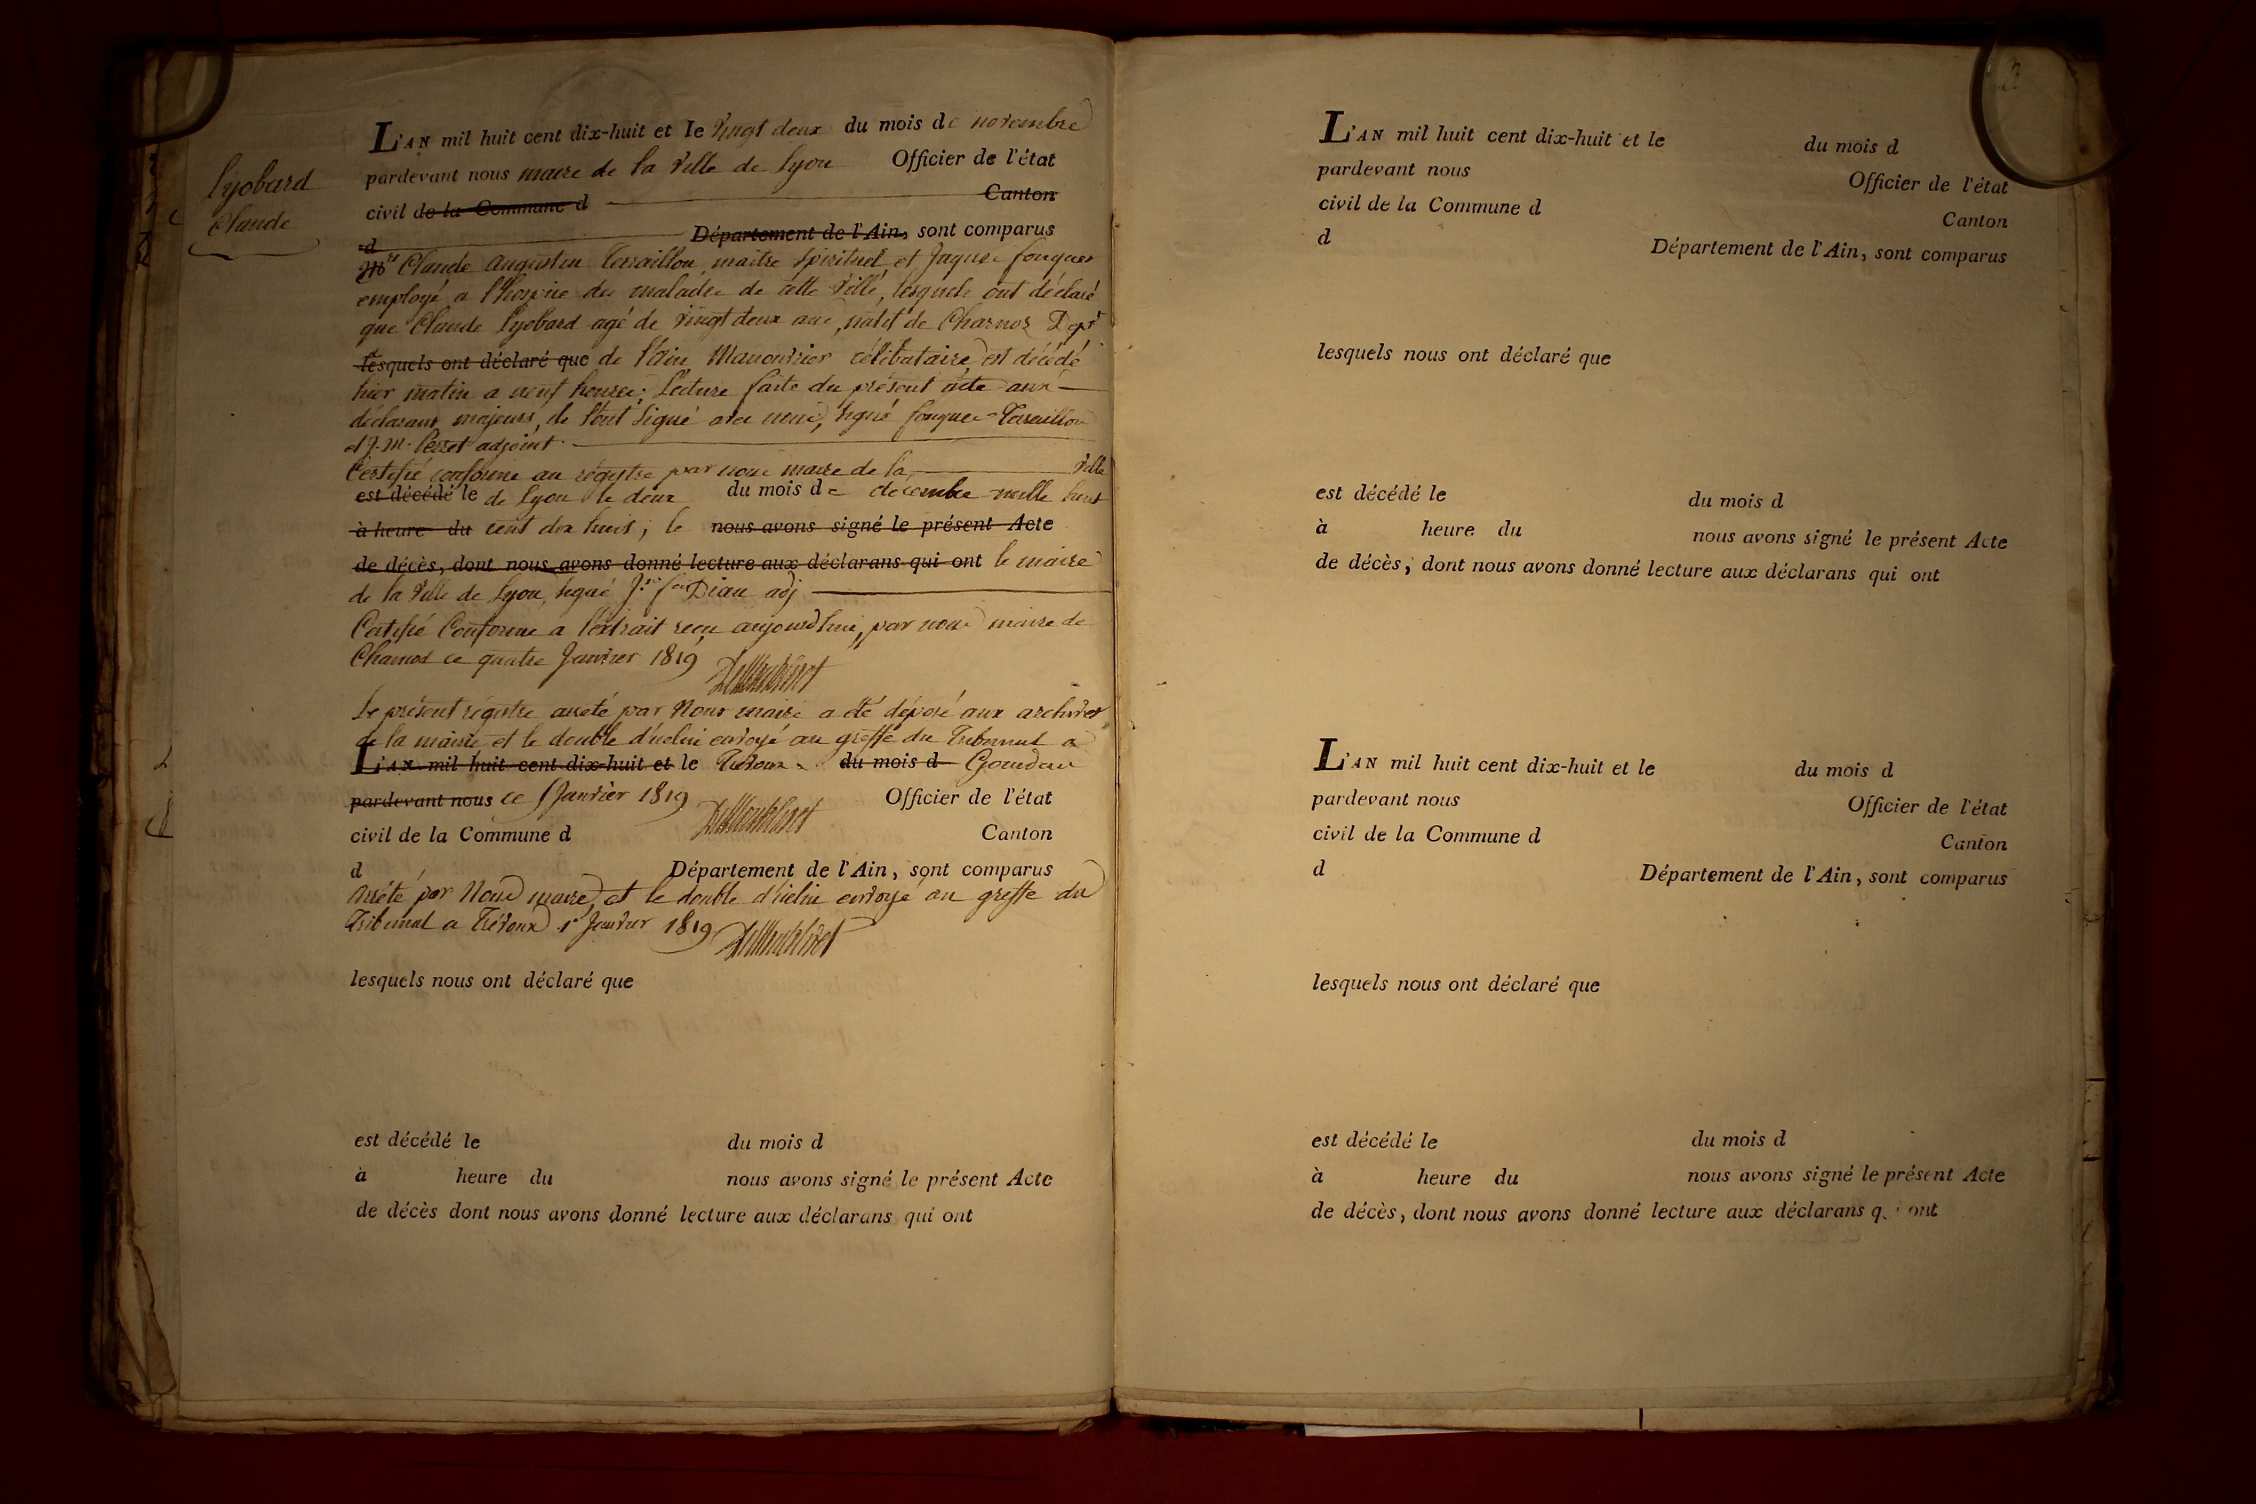 Lyobard
Claude
L'AN mil huit cent dix-huit et le vingt deux du mois de novembre
pardevant nous maire de la ville de Lyon Officier de l'état
civil de la Commune d Canton
d Département de l'Ain, sont comparus
Claude Augustin Terraillon maitre spirituel et Jaques fouques
employé a l'hospice des malades de cette ville, lesquels ont déclaré
que Claude Lyobard agé de vingt deux ans, natif de Charnoz Dept
lesquels ont déclaré que de l'Ain, Manouvrier célibataire, est décédé
hier matin a neuf heures; Lecture faite du présent acte aux
déclarans majeurs, ils l'ont signé avec nous, signé fouques Terraillon
et J. M. Perret adjoint
Certifié conforme au régistre par nous maire de la ville
est décédé le de Lyon le deux du mois de décembre mille huit
à heure du cent dix huit; le nous avons signé le présent Acte
de décès, dont nous avons donné lecture aux déclarans qui ont le maire
de la ville de Lyon, signé adj
Certifié Conforme a l'extrait reçu aujourd'hui, par nous maire de
Charnoz ce quatre Janvier 1819
Le présent régistre arreté par Nous maire a été déposé aux archives
de la mairie et le double d'icelui envoyé au greffe du Tribunal a
L'AN mil huit cent dix-huit et le Trévoux du mois d
pardevant nous ce Janvier 1819 Officier de l'état
civil de la Commune d Canton
d Département de l'Ain, sont comparus
Arrêté par Nous maire, et le double d'icelui envoyé au greffe du
Tribunal a Trévoux 1er Janvier 1819
lesquels nous ont déclaré que
est décédé le du mois d
à heure du nous avons signé le présent Acte
de décès dont nous avons donné lecture aux déclarans qui ont
L'AN mil huit cent dix-huit et le du mois d
pardevant nous Officier de l'état
civil de la Commune d Canton
d Département de l'Ain, sont comparus
lesquels nous ont déclaré que
est décédé le du mois d
à heure du nous avons signé le présent Acte
de décès, dont nous avons donné lecture aux déclarans qui ont
L'AN mil huit cent dix-huit et le du mois d
pardevant nous Officier de l'état
civil de la Commune d Canton
d Département de l'Ain, sont comparus
lesquels nous ont déclaré que
est décédé le du mois d
à heure du nous avons signé le présent Acte
de décès, dont nous avons donné lecture aux déclarans q ont